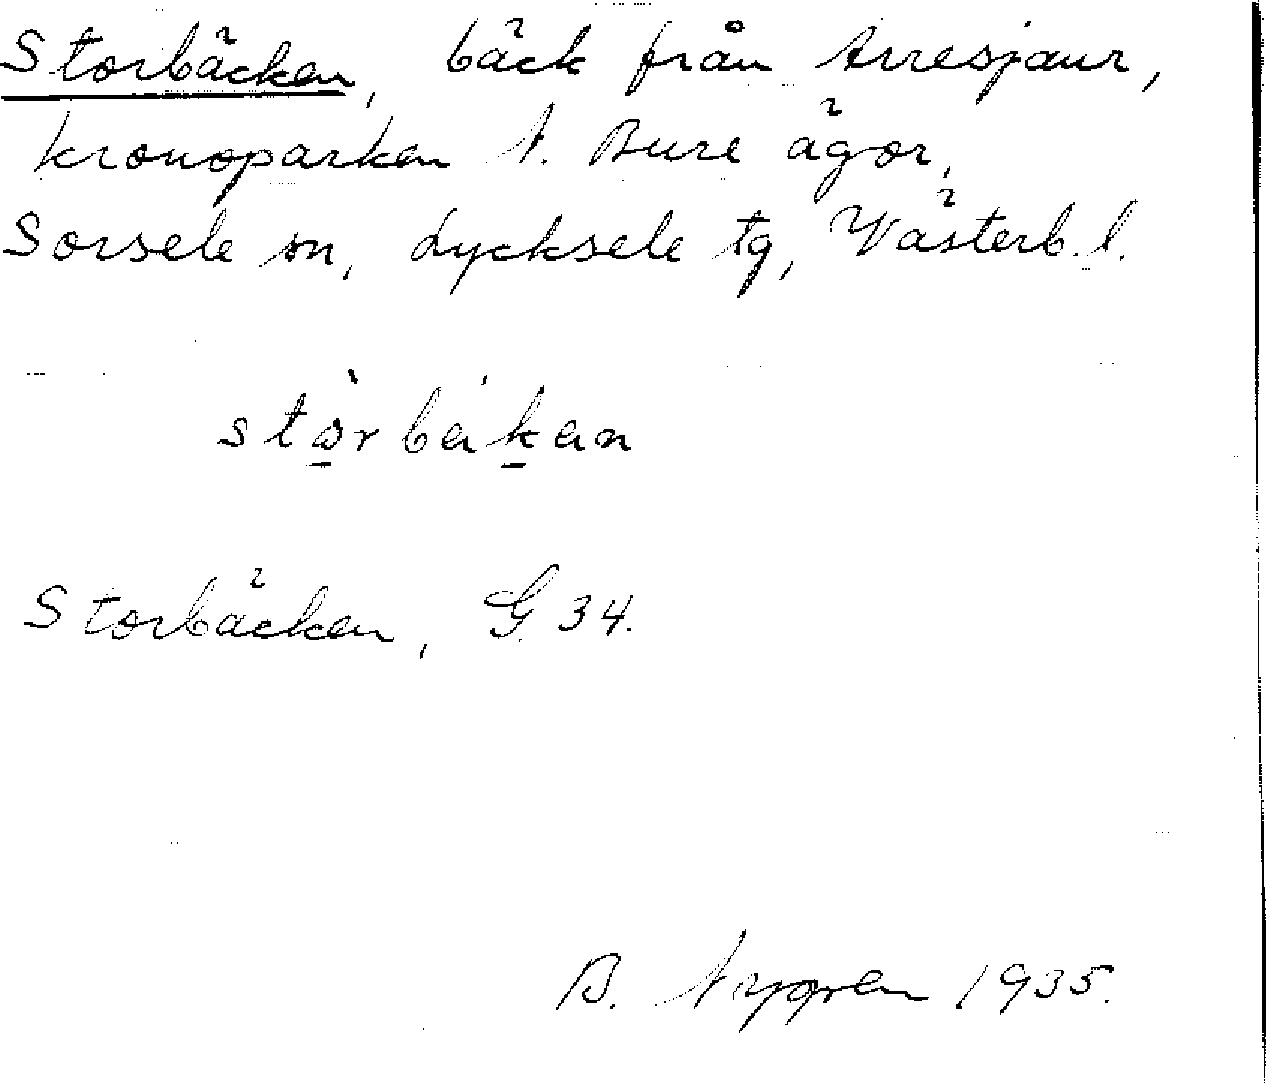 Storbäcken, bäck från Arresjaur,
kronoparken N. Bure ägor,
Sorsele sn, Lycksele tg, Västerb. l.
Storbäcken, G. 34.
B. Nygren 1935.